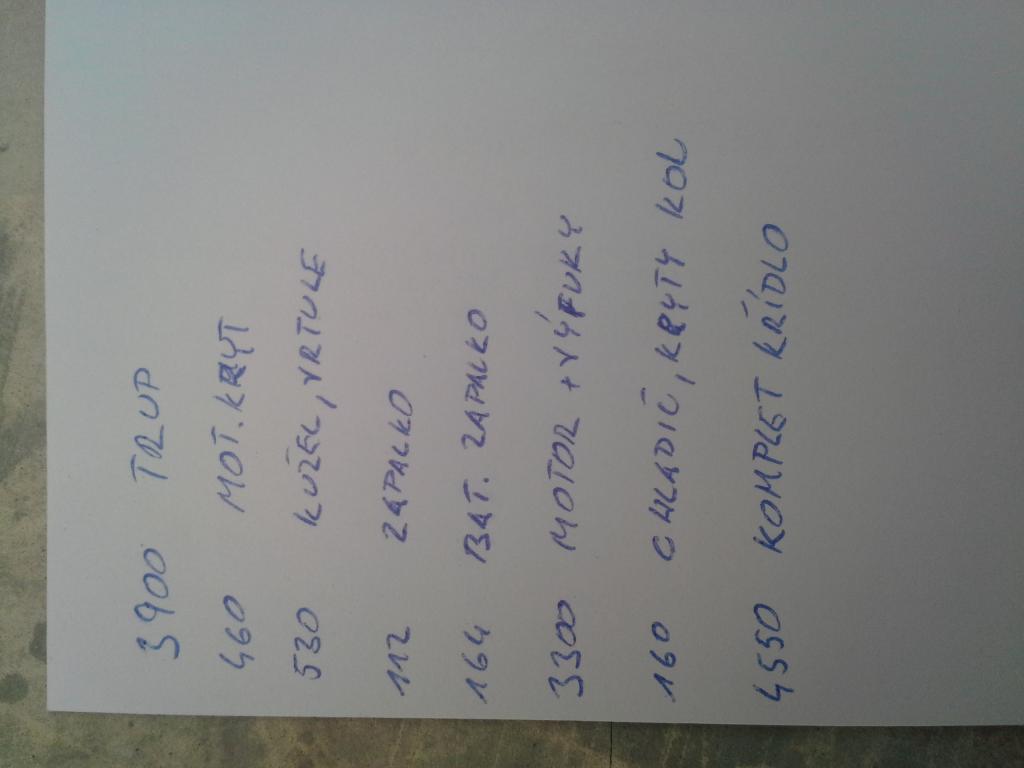 3900 TRUP
460 MOT. KRYT
530 KUŽEL, VRTULE
112 ZAPALKO
164 BAT. ZAPALKO
3300 MOTOR + VÝFUKY
160 CHLADIČ, KRYTY KOL
4550 KOMPLET KŘÍDLO